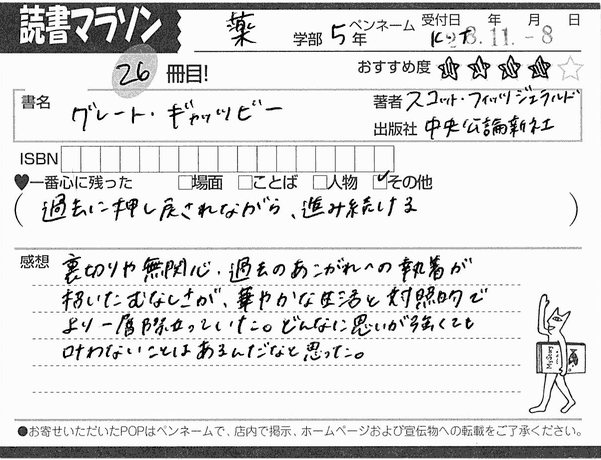 読書マラソン
薬 学部 5年 ペンネーム K.T 受付日 年 月 日
28.11.-8
26冊目!
おすすめ度 ★★★★☆
書名 グレート・ギャツビー
著者 スコット・フィッツジェラルド
出版社 中央公論新社
ISBN
♥一番心に残った □場面 □ことば □人物 ☑その他
(過去に押し戻されながら、進み続ける)
感想 裏切りや無関心、過去のあこがれへの執着が
招いたむなしさが、華やかな生活と対照的で
より一層際立っていた。どんなに思いが強くても
叶わないことはあるんだなと思った。
●お寄せいただいたPOPはペンネームで、店内で掲示、ホームページおよび宣伝物への転載をご了承ください。